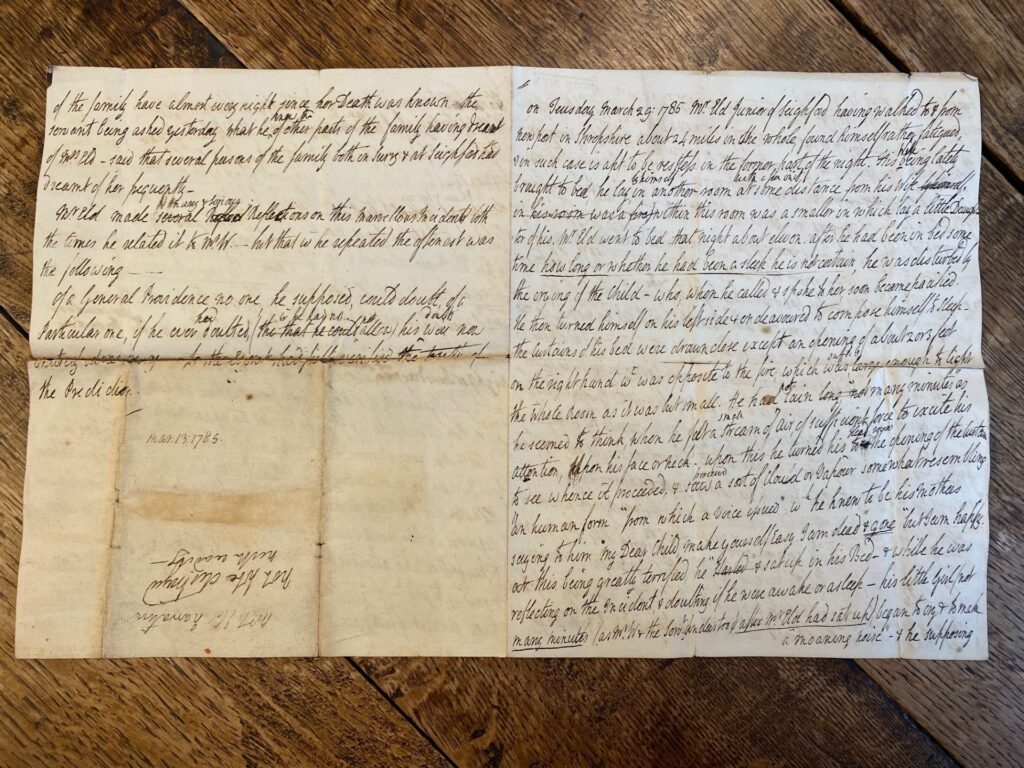 of the family have almost every night since her Death was known the
servant being asked yesterday what he knew of other parts of the family having dreamt
of Mrs Eld – said that several persons of the family both in Surry & at Seighford had
dreamt of her frequently –
Mr Eld made several Reflections on this marvellous Incident both
the times he related it to Mr W. – but that wch he repeated the oftenest was
the following –
of a General Providence no one he supposed, could doubt, of a
particular one, if he ever had doubted, his were now
the truth of
the Prediction.
mar. 13. 1785.
not to be destroyed
worth reading –
on Tuesday March 29 1785 Mr Eld Junior of Seighford having walked to & from
Newport in Shropshire about 24 miles on the whole found himself rather fatigued
& in such case is apt to be restless in the former part of the night. His wife being lately
brought to bed he lay by himself in another room at some distance from his wife
in this room was a smaller in which lay a little Daugh
ter of his. Mr Eld went to bed that night about eleven. after he had been in bed some
time how long or whether he had been asleep he is not certain, he was disturbed by
the crying of the Child – who, when he called & spoke to her soon became pacified.
He then turned himself on his left side & endeavoured to compose himself to sleep –
the curtains of his bed were drawn close except an opening of about 2 or 3 feet
on the right hand wch was opposite to the fire which was large enough to light
the whole room as it was but small. He had not lain long "not many minutes" as
he seemed to think when he felt a stream of air of sufficient force to excite his
attention, upon his face or neck. upon this he turned his head to the opening of the curtain
to see whence it proceeded, & perceived a sort of Cloud or Vapour somewhat resembling
"an human form "from which a voice issued" wch "he knew to be his mothers
saying to him "my Dear Child make yourself easy I am dead & gone" but I am happy.
at this being greatly terrified he & sat up in his Bed – & while he was
reflecting on the Incident & doubting if he were awake or asleep – his little Girl (not
many minutes (as Mr W & the Servt understood after Mr Eld had sat up) began to cry & to make
a moaning noise – & he supposing